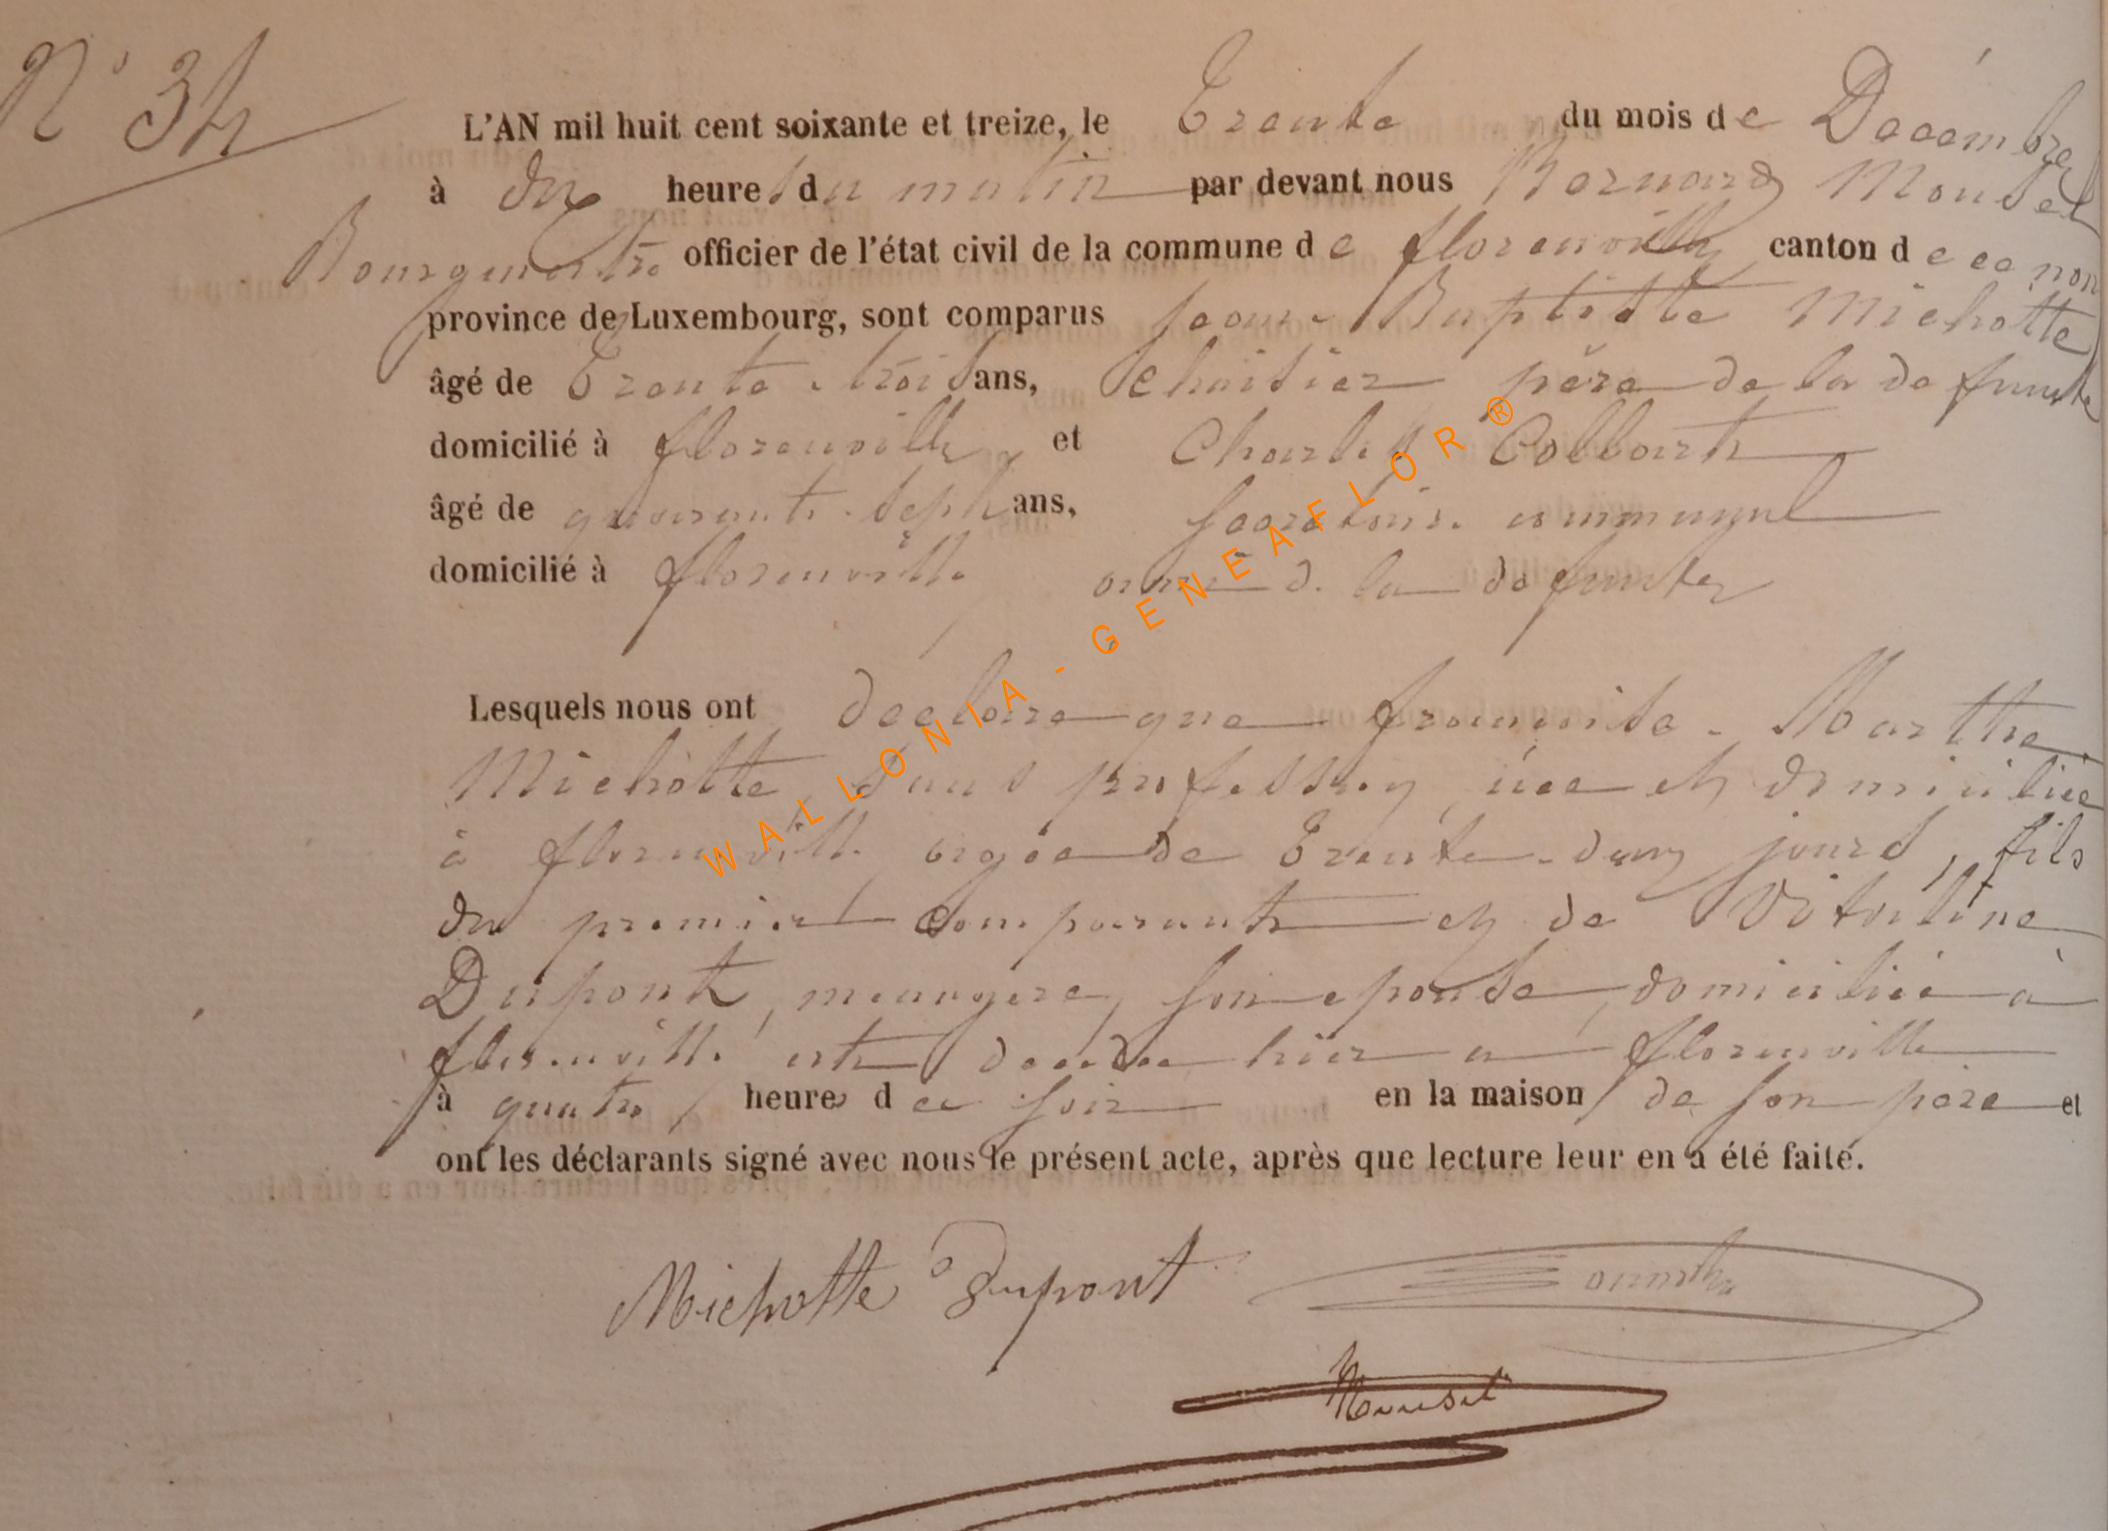 N° 34
L'AN mil huit cent soixante et treize, le Trente du mois de Décembre
à dix heures du matin par devant nous Bernard Mousel
Bourgmestre officier de l'état civil de la commune de florenville canton de ce nom
province de Luxembourg, sont comparus Jean Baptiste Michotte
âgé de Trente trois ans, père de la defunte
domicilié à florenville et Charles Collart
âgé de quarante sept ans, Secretaire communal
domicilié à florenville ami de la defunte
Lesquels nous ont declare que francoise Marthe
Michotte, sans profession, née et domiciliée
à florenville agée de Trente deux jours, fils
du premier Comparant et de Vitaline
Dupont, menagere, son epouse, domiciliée à
florenville est decedee hier a florenville
à quatre heures d u soir en la maison de son père et
ont les déclarants signé avec nous le présent acte, après que lecture leur en a été faite.
Michotte Dupont
Mousel
WALLONIA - GENEAFLOR ®